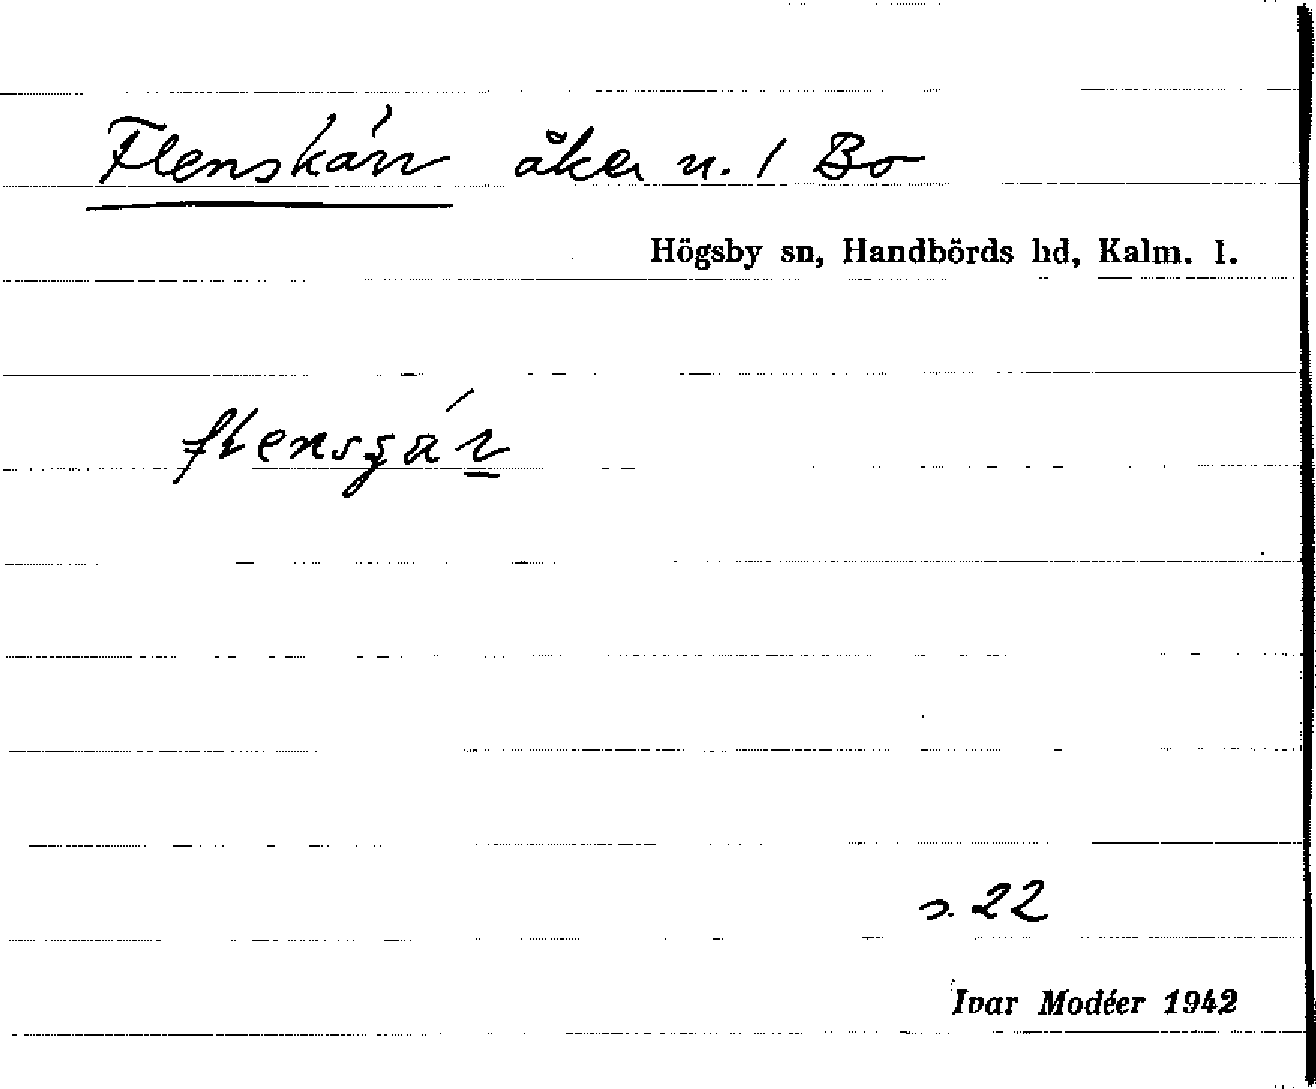 Flenskärr åker n. 1 Bo
Högsby sn, Handbörds hd, Kalm. l.
s. 22
Ivar Modéer 1942